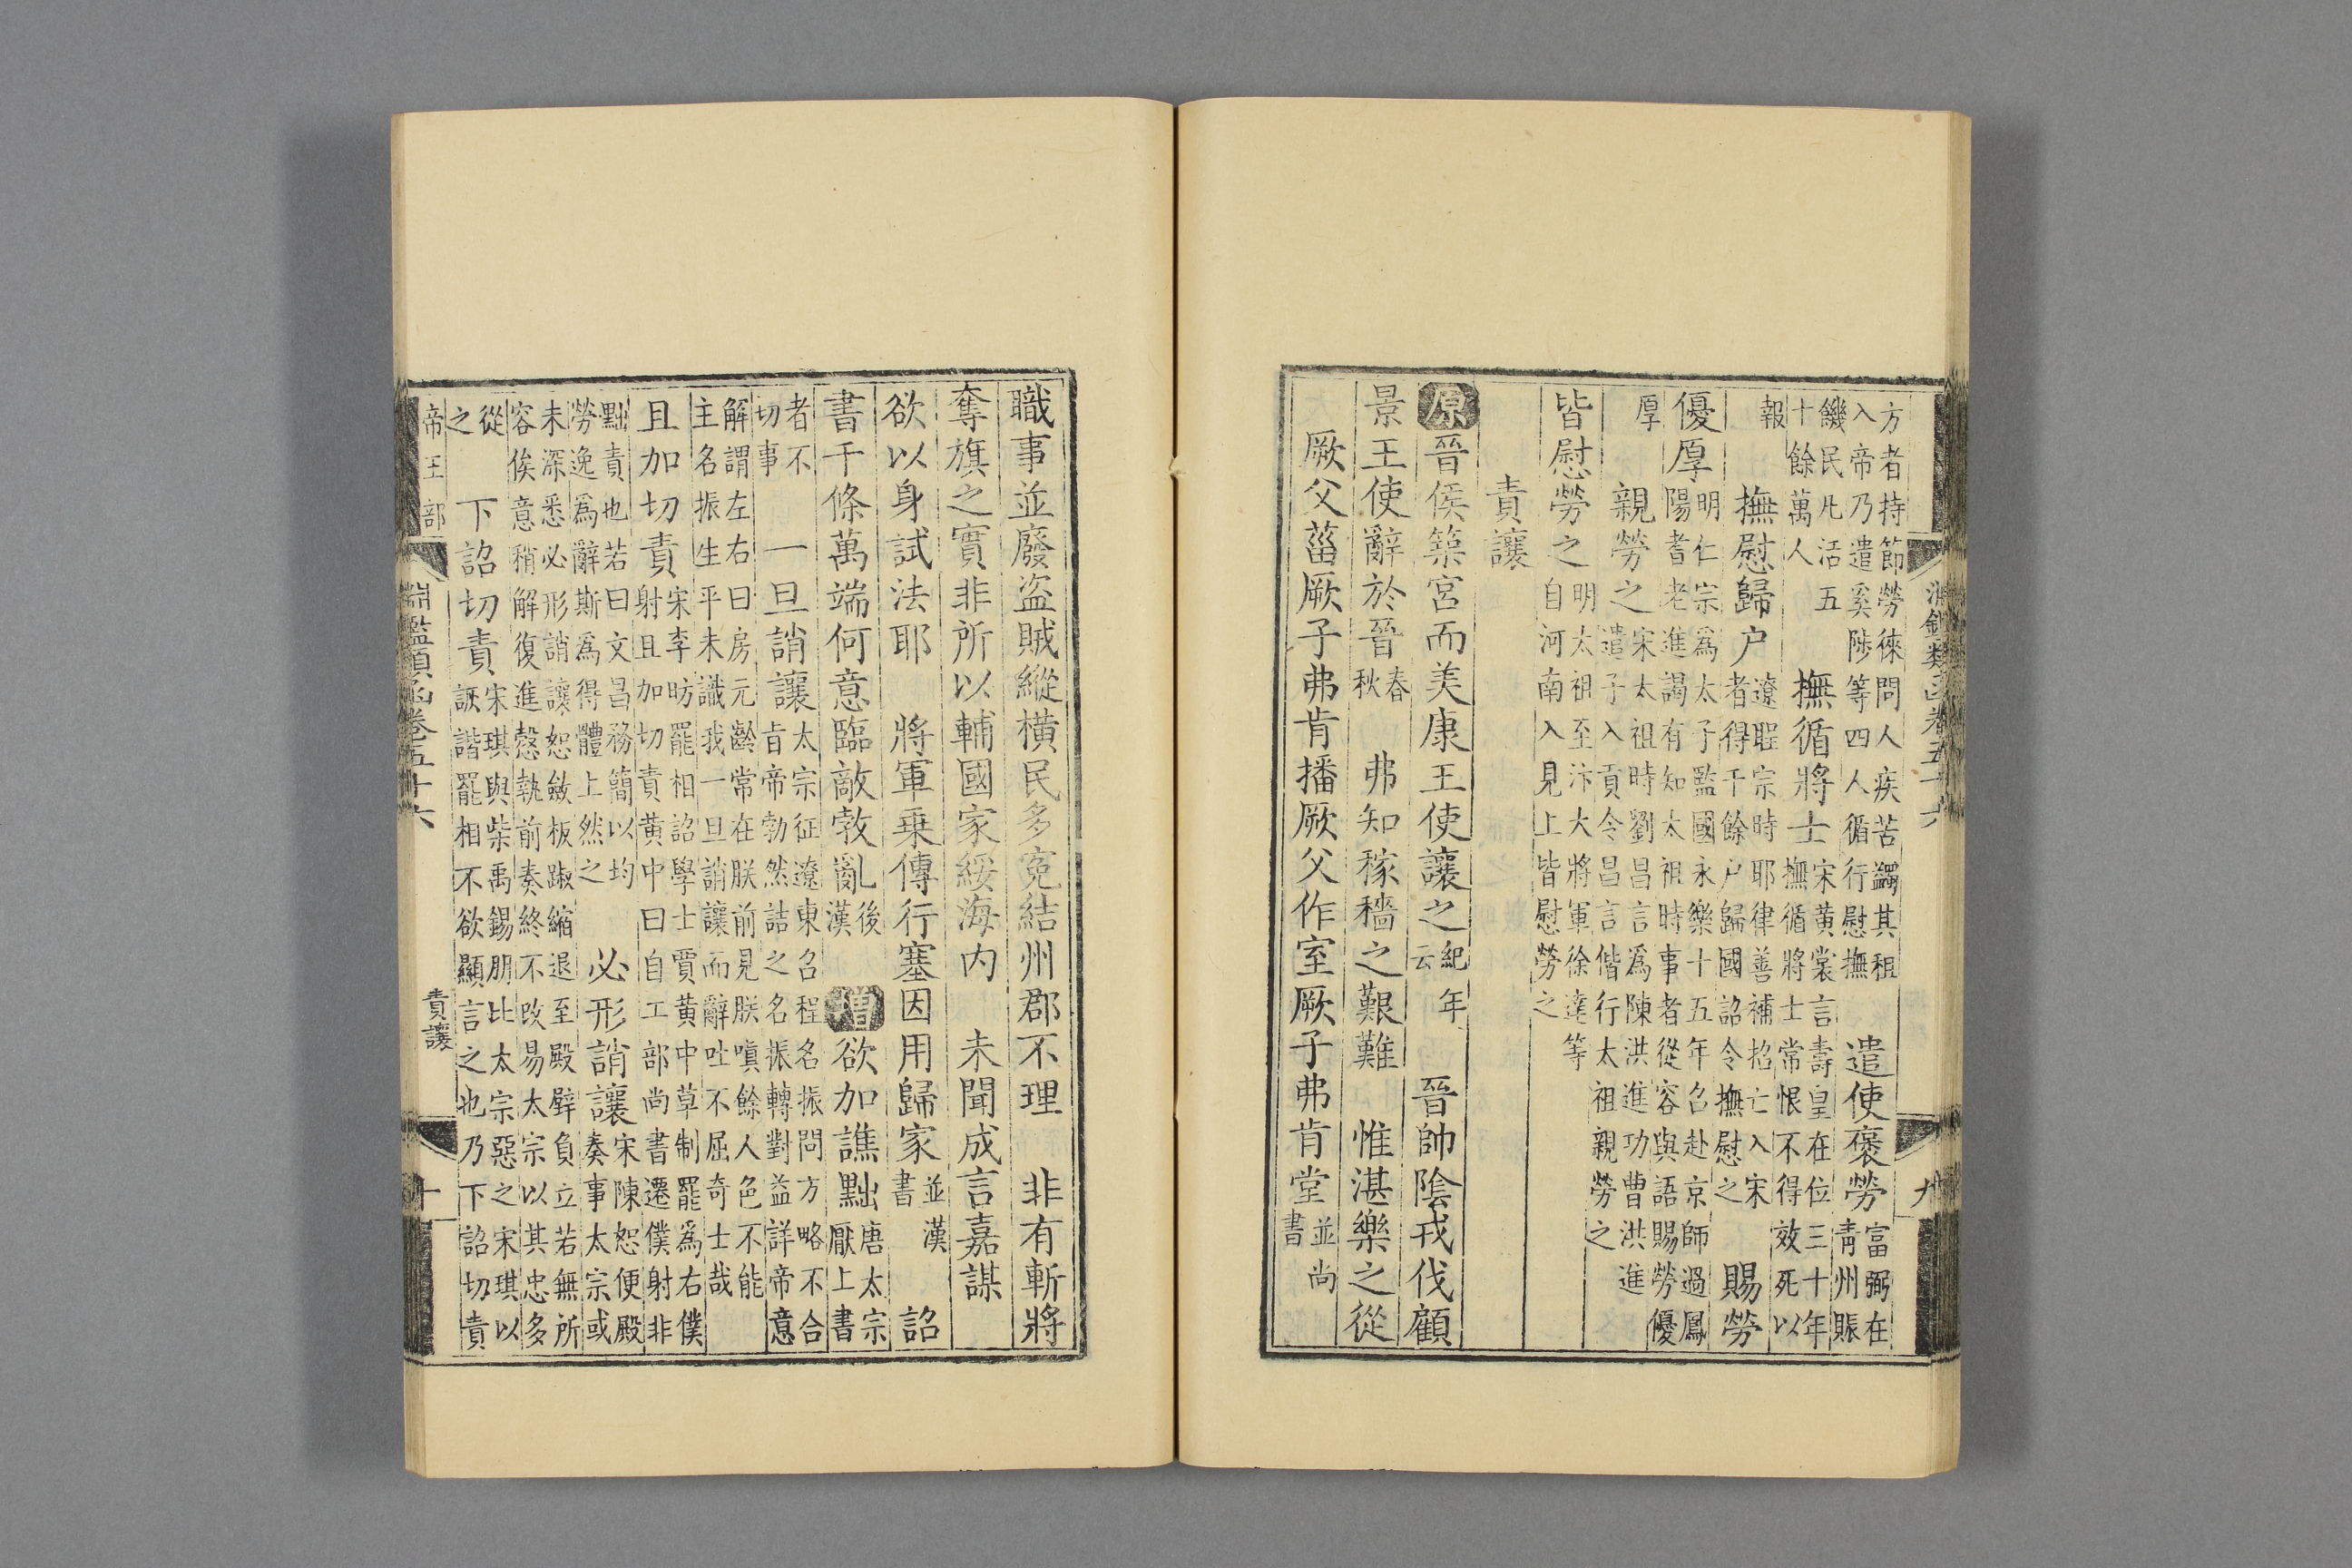 淵鑑類函卷五十六 九
方者持節勞徠問人疾苦蠲其租
入帝乃遣奚陟等四人循行慰撫
遣使褒勞
富弼在
青州賑
饑民凡活五
十餘萬人
撫循將士
宋黄裳言壽皇在位三十年
撫循將士常恨不得效死以
報
撫慰歸户
遼聖宗時耶律善補招亡入宋
者得千餘户歸國詔令撫慰之
賜勞
優厚
明仁宗爲太子監國永樂十五年召赴京師過鳳
陽耆老進謁有知太祖時事者從容與語賜勞優
厚
親勞之
宋太祖時劉昌言爲陳洪進功曹洪進
遣子入貢令昌言偕行太祖親勞之
皆慰勞之
明太祖至汴大將軍徐達等
自河南入見上皆慰勞之
責讓
原晉侯築宮而美康王使讓之
紀年
云
晉帥陰戎伐顧
景王使辭於晉
春
秋
弗知稼穡之艱難 惟湛樂之從
厥父菑厥子弗肯播厥父作室厥子弗肯堂
並尚
書
職事並廢盜賊縱橫民多冤結州郡不理 非有斬將
奪旗之實非所以輔國家綏海内 未聞成言嘉謀
欲以身試法耶 將軍乗傳行塞因用歸家
並漢
書
詔
書千條萬端何意臨敵敦亂
後
漢
增欲加譙黜
唐太宗
厭上書
者不
切事
一旦誚讓
太宗征遼東召程名振問方略不合
旨帝勃然詰之名振轉對益詳帝意
解謂左右曰房元齡常在朕前見朕嗔餘人色不能
主名振生平未識我一旦誚讓而辭吐不屈奇士哉
且加切責
宋李昉罷相詔學士賈黄中草制罷爲右僕
射且加切責黄中曰自工部尚書遷僕射非
黜責也若曰文昌務簡以均
勞逸爲辭斯爲得體上然之
必形誚讓
宋陳恕便殿
奏事太宗或
未深悉必形誚讓恕斂板踧縮退至殿壁負立若無所
容俟意稍解復進愨執前奏終不改易太宗以其忠多
從
之
下詔切責
宋琪與柴禹錫朋比太宗惡之宋琪以
詼諧罷相不欲顯言之也乃下詔切責
帝王部 淵鑑類函卷五十六 責讓 十